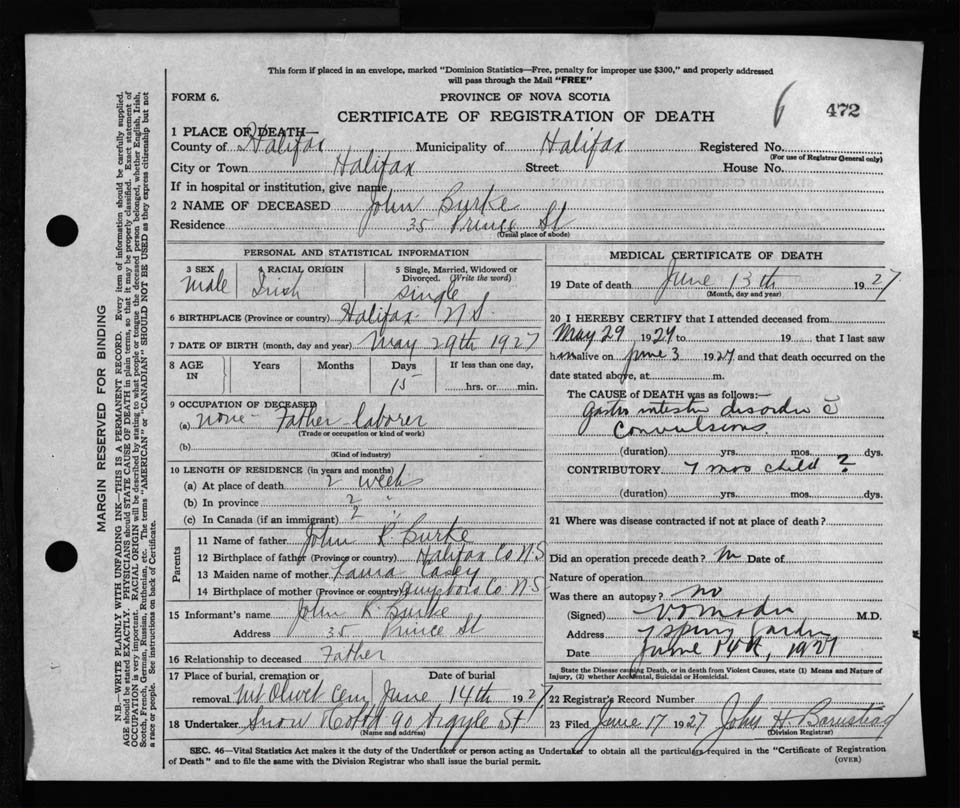 This form if placed in an envelope, marked "Dominion Statistics—Free, penalty for improper use $300," and properly addressed
will pass through the Mail "FREE"
FORM 6.
PROVINCE OF NOVA SCOTIA
6 472
CERTIFICATE OF REGISTRATION OF DEATH
1 PLACE OF DEATH—
County of Halifax Municipality of Halifax Registered No.
(For use of Registrar General only)
City or Town Halifax Street House No.
If in hospital or institution, give name
2 NAME OF DECEASED John Burke
Residence 35 Prince St
(Usual place of abode)
PERSONAL AND STATISTICAL INFORMATION
3 SEX 4 RACIAL ORIGIN 5 Single, Married, Widowed or
Divorced. (Write the word)
Male Irish single
6 BIRTHPLACE (Province or country) Halifax N S
7 DATE OF BIRTH (month, day and year) May 29th 1927
8 AGE IN Years Months Days If less than one day,
15 hrs. or min.
9 OCCUPATION OF DECEASED
(a) none - Father laborer
(Trade or occupation or kind of work)
(b)
(Kind of industry)
10 LENGTH OF RESIDENCE (in years and months)
(a) At place of death 2 weeks
(b) In province 2 "
(c) In Canada (if an immigrant) 2 "
Parents
11 Name of father John R Burke
12 Birthplace of father (Province or country) Halifax Co N S
13 Maiden name of mother Laura Casey
14 Birthplace of mother (Province or country) Guysboro Co N S
15 Informant's name John R Burke
Address 35 Prince St
16 Relationship to deceased Father
17 Place of burial, cremation or Date of burial
removal Mt Olivet Cem June 14th 1927
18 Undertaker Snow & Co Ltd 90 Argyle St
(Name and address)
MEDICAL CERTIFICATE OF DEATH
19 Date of death June 13th 1927
(Month, day and year)
20 I HEREBY CERTIFY that I attended deceased from
May 29 1927 to 19 that I last saw
him alive on June 3 1927 and that death occurred on the
date stated above, at m.
The CAUSE of DEATH was as follows:
Gastro intestin disorder c̄
Convulsions.
(duration) yrs. mos. dys.
CONTRIBUTORY 7 mos child ?
(duration) yrs. mos. dys.
21 Where was disease contracted if not at place of death?
Did an operation precede death? No Date of
Nature of operation
Was there an autopsy? no
(Signed) M.D.
Address Spring Garden
Date June 14th, 1927
State the Disease causing Death, or in death from Violent Causes, state (1) Means and Nature of
Injury, (2) whether Accidental, Suicidal or Homicidal.
22 Registrar's Record Number
23 Filed June 17 1927 John H Barnstead
(Division Registrar)
SEC. 46—Vital Statistics Act makes it the duty of the Undertaker or person acting as Undertaker to obtain all the particulars required in the "Certificate of Registration
of Death" and to file the same with the Division Registrar who shall issue the burial permit.
(OVER)
MARGIN RESERVED FOR BINDING
N.B.—WRITE PLAINLY WITH UNFADING INK—THIS IS A PERMANENT RECORD. Every item of information should be carefully supplied.
AGE should be stated EXACTLY. PHYSICIANS should STATE CAUSE OF DEATH in plain terms, so that it may be properly classified. Exact statement of
OCCUPATION is very important. RACIAL ORIGIN will be described by stating to what people or tongue the deceased person belonged, whether English, Irish,
Scotch, French, German, Russian, Ruthenian, etc. The terms "AMERICAN" or "CANADIAN" SHOULD NOT BE USED as they express citizenship but not
a race or people. See instructions on back of Certificate.